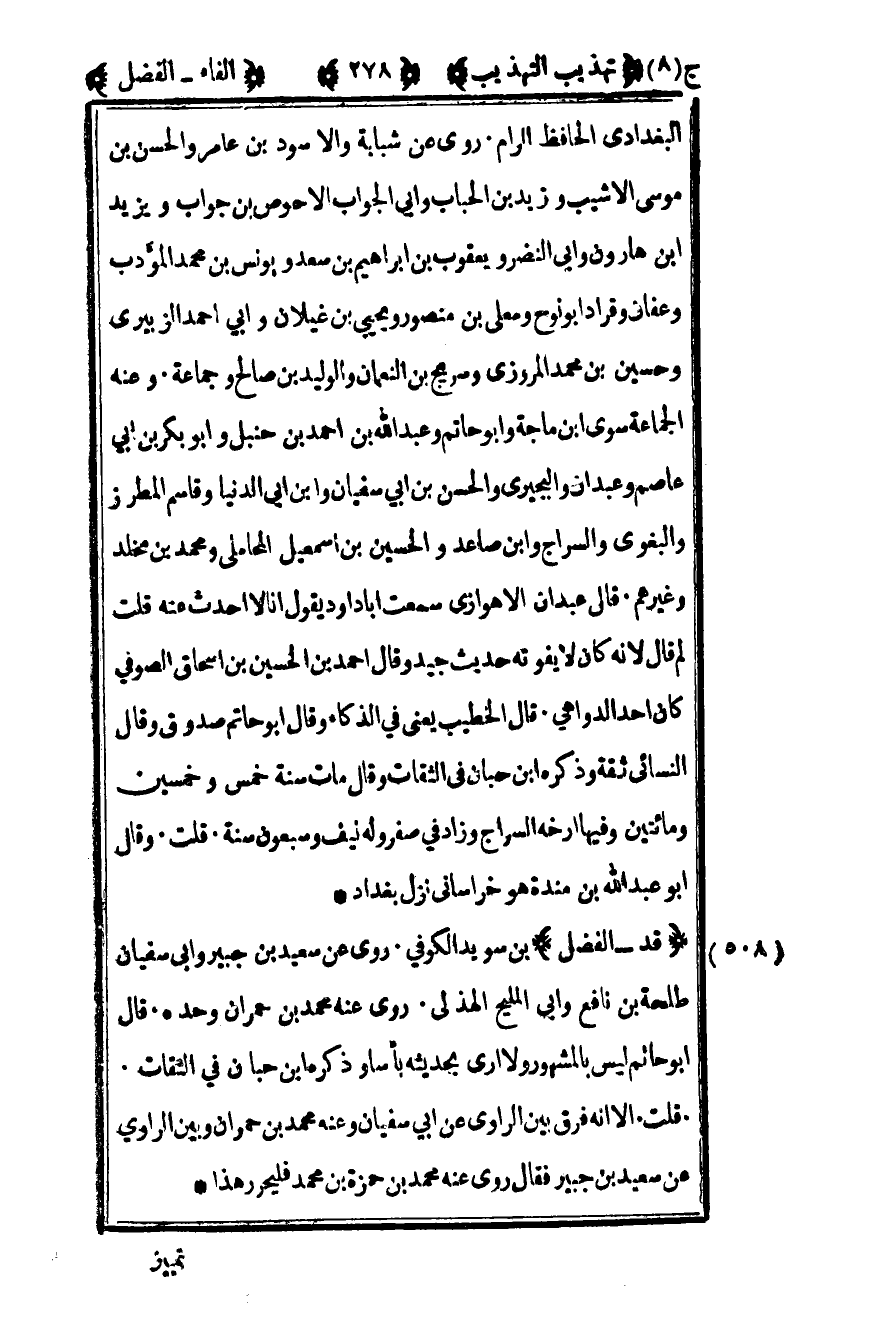 ج(٨) ﴿ تهذيب التهذيب ﴾ ﴿ ٢٧٨ ﴾ ﴿ الفاء ـ الفضل ﴾
البغدادى الحافظ الرام ٠ روى عن شبابة والاسود بن عامر والحسن بن
موسى الاشيب وزيد بن الحباب وابي الجواب الاحوص بن جواب ويزيد
ابن هارون وابي النضر ويعقوب بن ابراهيم بن سعد ويونس بن محمد المؤدب
وعفان وقراد ابو نوح ومعلى بن منصور ويحيى بن غيلان وابي احمد الزبيرى
وحسين بن محمد المروزى وسريج بن النعمان والوليد بن صالح وجماعة ٠ وعنه
الجماعة سوى ابن ماجة وابو حاتم وعبد الله بن احمد بن حنبل وابو بكر بن ابي
عاصم وعبدان والبجيرى والحسن بن ابي سفيان وابن ابي الدنيا وقاسم المطرز
والبغوى والسراج وابن صاعد والحسين بن اسمعيل المحاملى ومحمد بن مخلد
وغيرهم ٠ قال عبدان الاهوازى سمعت ابا داود يقول انا لا احدث عنه قلت
لم قال لانه كان لا يفوته حديث جيد وقال احمد بن الحسين بن اسحاق الصوفي
كان احد الدواهي ٠ قال الخطيب يعنى في الذكاء وقال ابو حاتم صدوق وقال
النسائى ثقة وذكره ابن حبان فى الثقات وقال مات سنة خمس وخمسين
ومائتين وفيها ارخه السراج وزاد في صفر وله نيف وسبعون سنة ٠ قلت ٠ وقال
ابو عبد الله بن مندة هو خراسانى نزل بغداد *
﴿ قد ـ الفضل ﴾ بن سويد الكوفي ٠ روى عن سعيد بن جبير وابى سفيان (٥٠٨)
طلحة بن نافع وابي المليح الهذلى ٠ روى عنه محمد بن حمران وحده ٠ قال
ابو حاتم ليس بالمشهور ولا ارى بحديثه بأسا وذكره ابن حبان في الثقات ٠
٠ قلت ٠ الا انه فرق بين الراوى عن ابي سفيان وعنه محمد بن حمران وبين الراوي
عن سعيد بن جبير فقال روى عنه محمد بن حمزة بن محمد فليحرر هذا *
تمييز